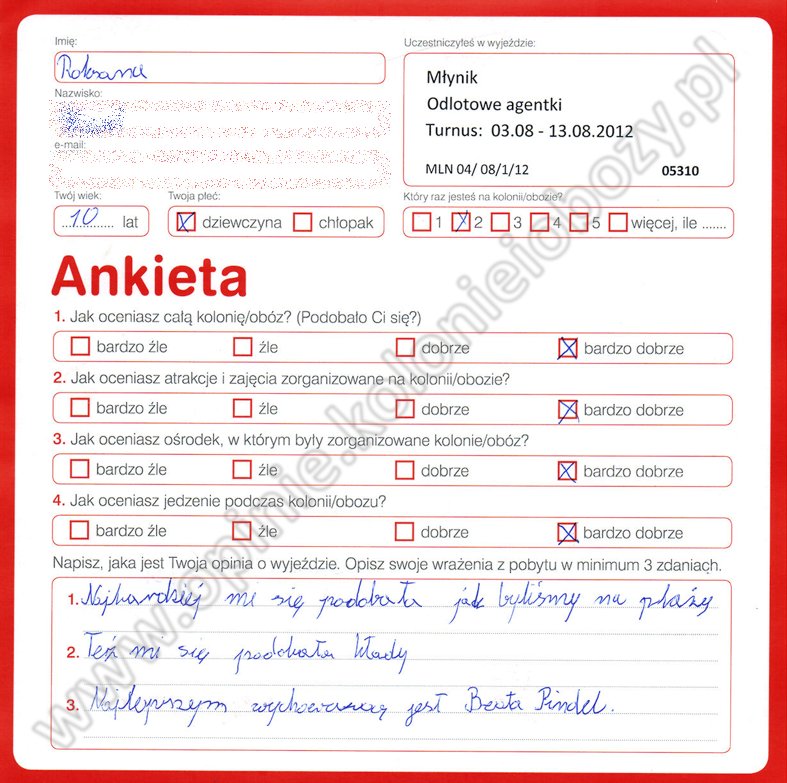 Imię:
Roksana
Nazwisko:
e-mail:
Twój wiek:
10 lat
Twoja płeć:
dziewczyna chłopak
Uczestniczyłeś w wyjeździe:
Młynik
Odlotowe agentki
Turnus: 03.08 - 13.08.2012
MLN 04/ 08/1/12 05310
Który raz jesteś na kolonii/obozie?
1 2 3 4 5 więcej, ile .......
Ankieta
1. Jak oceniasz całą kolonię/obóz? (Podobało Ci się?)
bardzo źle źle dobrze bardzo dobrze
2. Jak oceniasz atrakcje i zajęcia zorganizowane na kolonii/obozie?
bardzo źle źle dobrze bardzo dobrze
3. Jak oceniasz ośrodek, w którym były zorganizowane kolonie/obóz?
bardzo źle źle dobrze bardzo dobrze
4. Jak oceniasz jedzenie podczas kolonii/obozu?
bardzo źle źle dobrze bardzo dobrze
Napisz, jaka jest Twoja opinia o wyjeździe. Opisz swoje wrażenia z pobytu w minimum 3 zdaniach.
1. Najbardziej mi się podobała jak byliśmy na plaży
2. Też mi się podobała kłady
3. Najlepszym wychowawcą jest Beata Pindel.
www.opinie.kolonieiobozy.pl